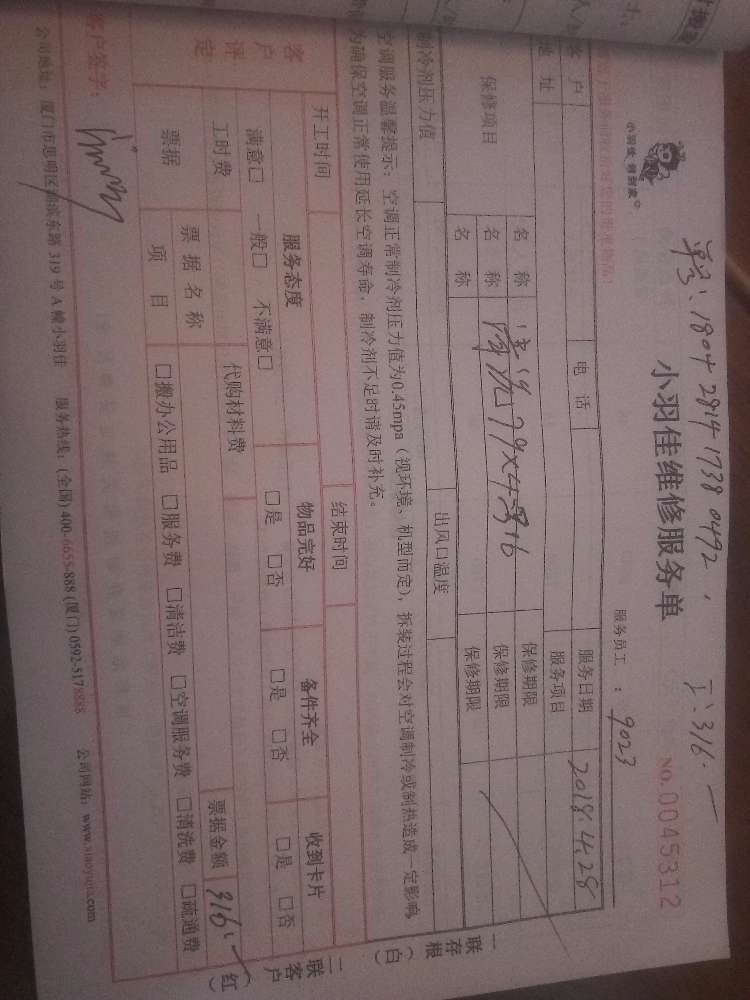 单号:1804 2814 1738 0492.
工:316.一
小羽佳 家到家
小羽佳维修服务单
NO.0045312
服务员工 : 9023
客户
电话
服务日期 2018.4.28
地址
服务项目
保修项目
名称 清洗
保修期限
名称 清洗79×4=316
保修期限
名称
保修期限
制冷剂压力值
出风口温度
空调服务温馨提示:空调正常制冷剂压力值为0.45mpa(视环境、机型而定),拆装过程会对空调制冷或制热造成一定影响,
为确保空调正常使用延长空调寿命,制冷剂不足时请及时补充。
开工时间
结束时间
客户评定
服务态度
物品完好
备件齐全
收到卡片
满意□ 一般□ 不满意□
□是 □否
□是 □否
□是 □否
工时费
代购材料费
票据金额 316.一
票据
票据名称
项目
□搬办公用品 □服务费 □清洁费 □空调服务费 □清洗费 □疏通费
客户签字:
公司地址:厦门市思明区湖滨东路319号A幢小羽佳 服务热线:(全国)400-6655-888(厦门)0592-5178888 公司网站:www.xiaoyujia.com
一联存根(白)
二联客户(红)